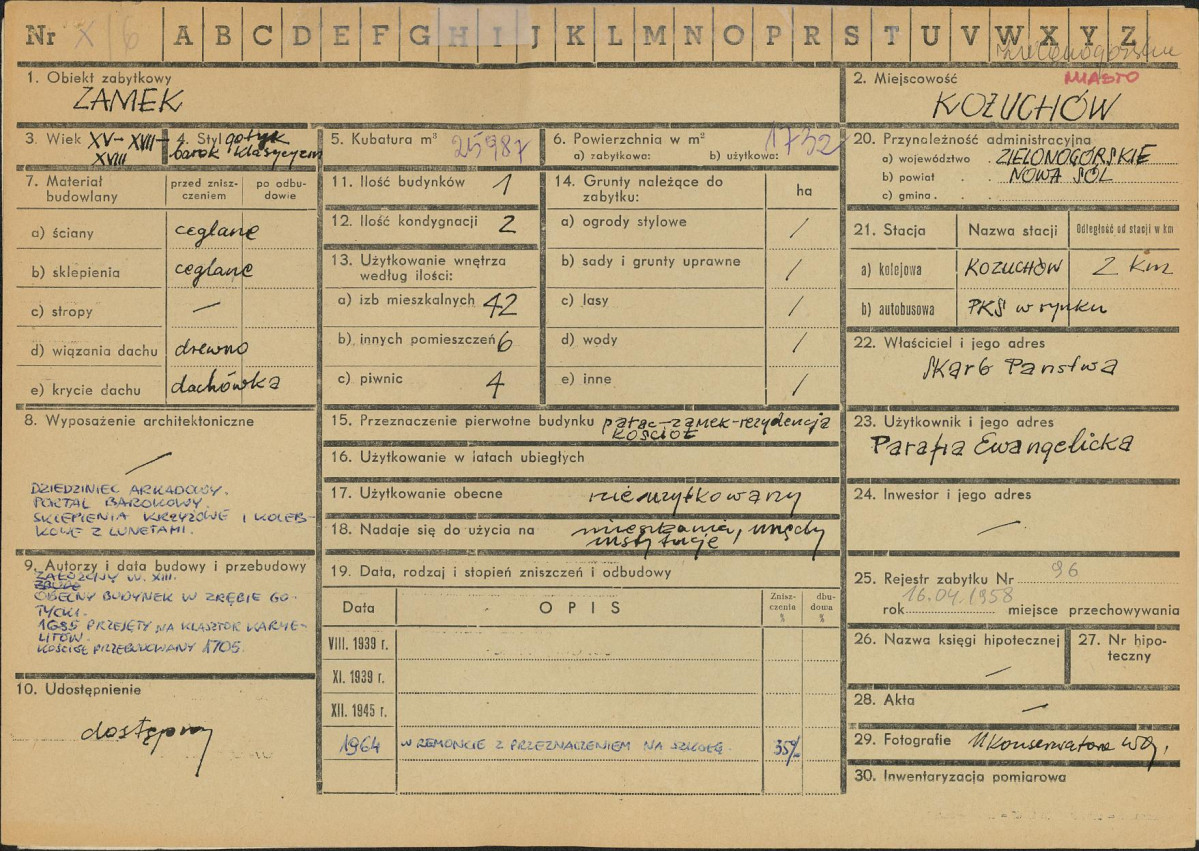 Nr X/6 A B C D E F G H I J K L M N O P R S T U V W X Y Z
zielonogórskie
1. Obiekt zabytkowy
ZAMEK
2. Miejscowość
MIASTO
KOŻUCHÓW
3. Wiek XV- XVII-
XVIII
4. Styl gotyk
barok klasycyzm
5. Kubatura m³ 25987
6. Powierzchnia w m²
a) zabytkowa: b) użytkowa: 1732
7. Materiał
budowlany
przed znisz-
czeniem
po odbu-
dowie
a) ściany ceglane
b) sklepienia ceglane
c) stropy —
d) wiązania dachu drewno
e) krycie dachu dachówka
8. Wyposażenie architektoniczne
DZIEDZINIEC ARKADOWY.
PORTAL BAROKOWY.
SKLEPIENIA KRZYŻOWE I KOLEB-
KOWE Z LUNETAMI.
9. Autorzy i data budowy i przebudowy
ZAŁOŻONY W. XIII.
OBECNY BUDYNEK W ZRĘBIE GO-
TYCKI.
1685 PRZEJĘTY NA KLASZTOR KARME-
LITÓW.
KOŚCIÓŁ PRZEBUDOWANY 1705.
10. Udostępnienie
dostępny
11. Ilość budynków 1
12. Ilość kondygnacji 2
13. Użytkowanie wnętrza
według ilości:
a) izb mieszkalnych 42
b) innych pomieszczeń 6
c) piwnic 4
14. Grunty należące do
zabytku:
ha
a) ogrody stylowe /
b) sady i grunty uprawne /
c) lasy /
d) wody /
e) inne /
15. Przeznaczenie pierwotne budynku pałac-zamek-rezydencja
KOŚCIÓŁ
16. Użytkowanie w latach ubiegłych
17. Użytkowanie obecne nieużytkowany
18. Nadaje się do użycia na mieszkania, urzędy
instytucje
19. Data, rodzaj i stopień zniszczeń i odbudowy
Data OPIS
Znisz-
czenia
%
dbu-
dowa
%
VIII. 1939 r.
XI. 1939 r.
XII. 1945 r.
1964 W REMONCIE Z PRZEZNACZENIEM NA SZKOŁĘ. 35%
20. Przynależność administracyjna
a) województwo . ZIELONOGÓRSKIE
b) powiat . . NOWA SÓL
c) gmina . .
21. Stacja Nazwa stacji Odległość od stacji w km
a) kolejowa KOZUCHÓW 2 km
b) autobusowa PKS w rynku
22. Właściciel i jego adres
Skarb Panstwa
23. Użytkownik i jego adres
Parafia Ewangelicka
24. Inwestor i jego adres
—
25. Rejestr zabytku Nr 96
rok 16.04.1958 miejsce przechowywania
26. Nazwa księgi hipotecznej
—
27. Nr hipo-
teczny
28. Akta —
29. Fotografie U Konserwatora Woj.
30. Inwentaryzacja pomiarowa